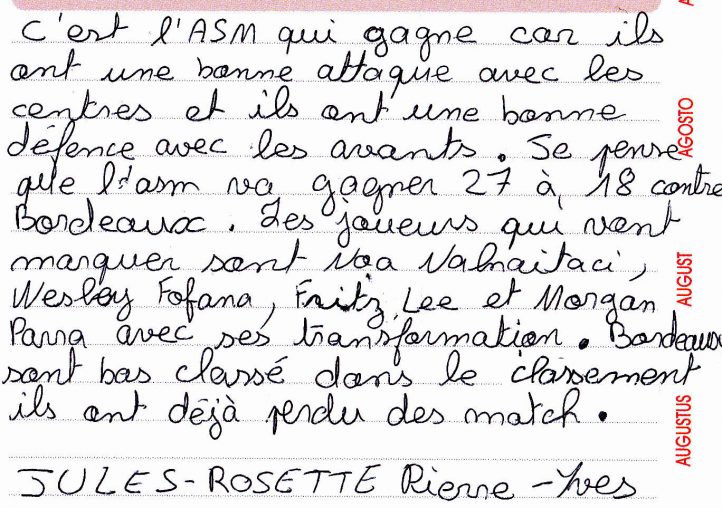 C'est l'ASM qui gagne car ils
ont une bonne attaque avec les
centres et ils ont une bonne
défence avec les avants. Je pense
que l'asm va gagner 27 à 18 contre
Bordeaux. Les joueurs qui vont
marquer sont Noa Nalnaitaci,
Wesley Fofana, Fritz Lee et Morgan
Parra avec ses transformation. Bordeaux
sont bas classé dans le classement
ils ont déjà perdu des match.
JULES-ROSETTE Pierre-Yves
AGOSTO
AUGUST
AUGUSTUS